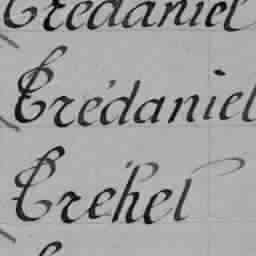 Trédaniel
Trédaniel
Tréhel